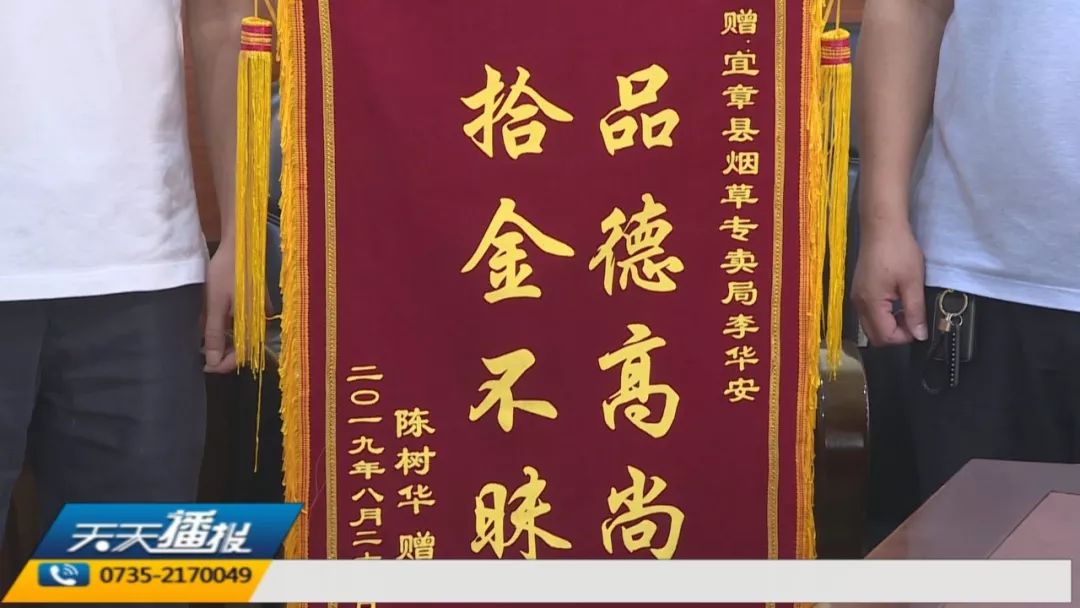 赠:宜章县烟草专卖局李华安
品德高尚
拾金不昧
陈树华 赠
二〇一九年八月二
天天播报
0735-2170049